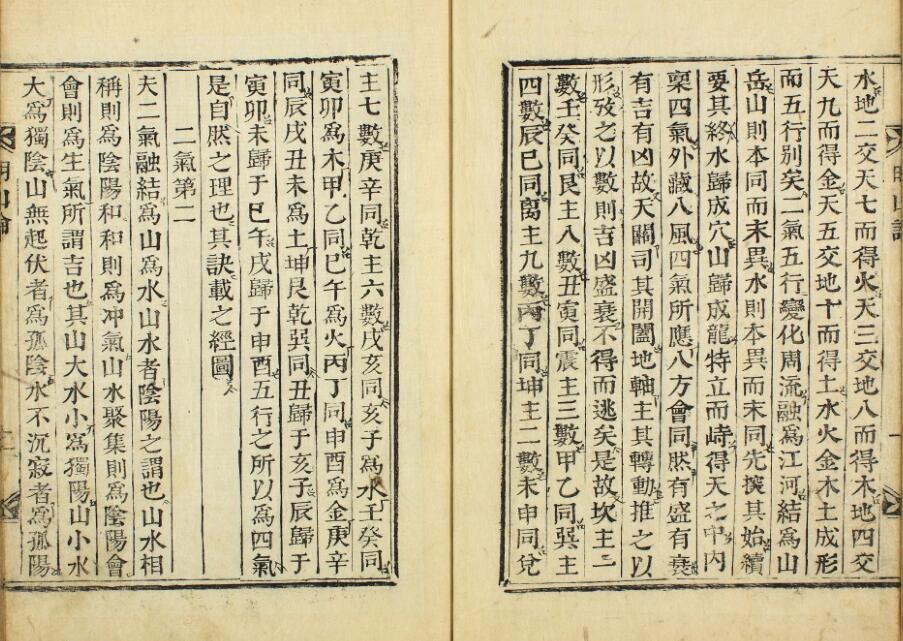 水地二交天七而得火天三交地八而得木地四交
天九而得金天五交地十而得土水火金木土成形
而五行別矣二氣五行變化周流融爲江河結爲山
岳山則本同而末異水則本異而末同先揆其始續
要其終水歸成穴山歸成龍特立而峙得天之中內
稟四氣外藏八風四氣所應八方會同然有盛有衰
有吉有凶故天關司其開闔地軸主其轉動推之以
形攷之以數則吉凶盛衰不得而逃矣是故坎主一
數壬癸同艮主八數丑寅同震主三數甲乙同巽主
四數辰巳同离主九數丙丁同坤主二數未申同兌
主七數庚辛同乾主六數戌亥同亥子爲水壬癸同
寅卯爲木甲乙同巳午爲火丙丁同申酉爲金庚辛
同辰戌丑未爲土坤艮乾巽同丑歸于亥子辰歸于
寅卯未歸于巳午戌歸于申酉五行之所以爲四氣
是自然之理也其訣載之經圖
二氣第二
夫二氣融結爲山爲水山水者陰陽之謂也山水相
稱則爲陰陽和和則爲冲氣山水聚集則爲陰陽會
會則爲生氣所謂吉也其山大水小爲獨陽山小水
大爲獨陰山無起伏者爲孤陰水不沉寂者爲孤陽
明山論